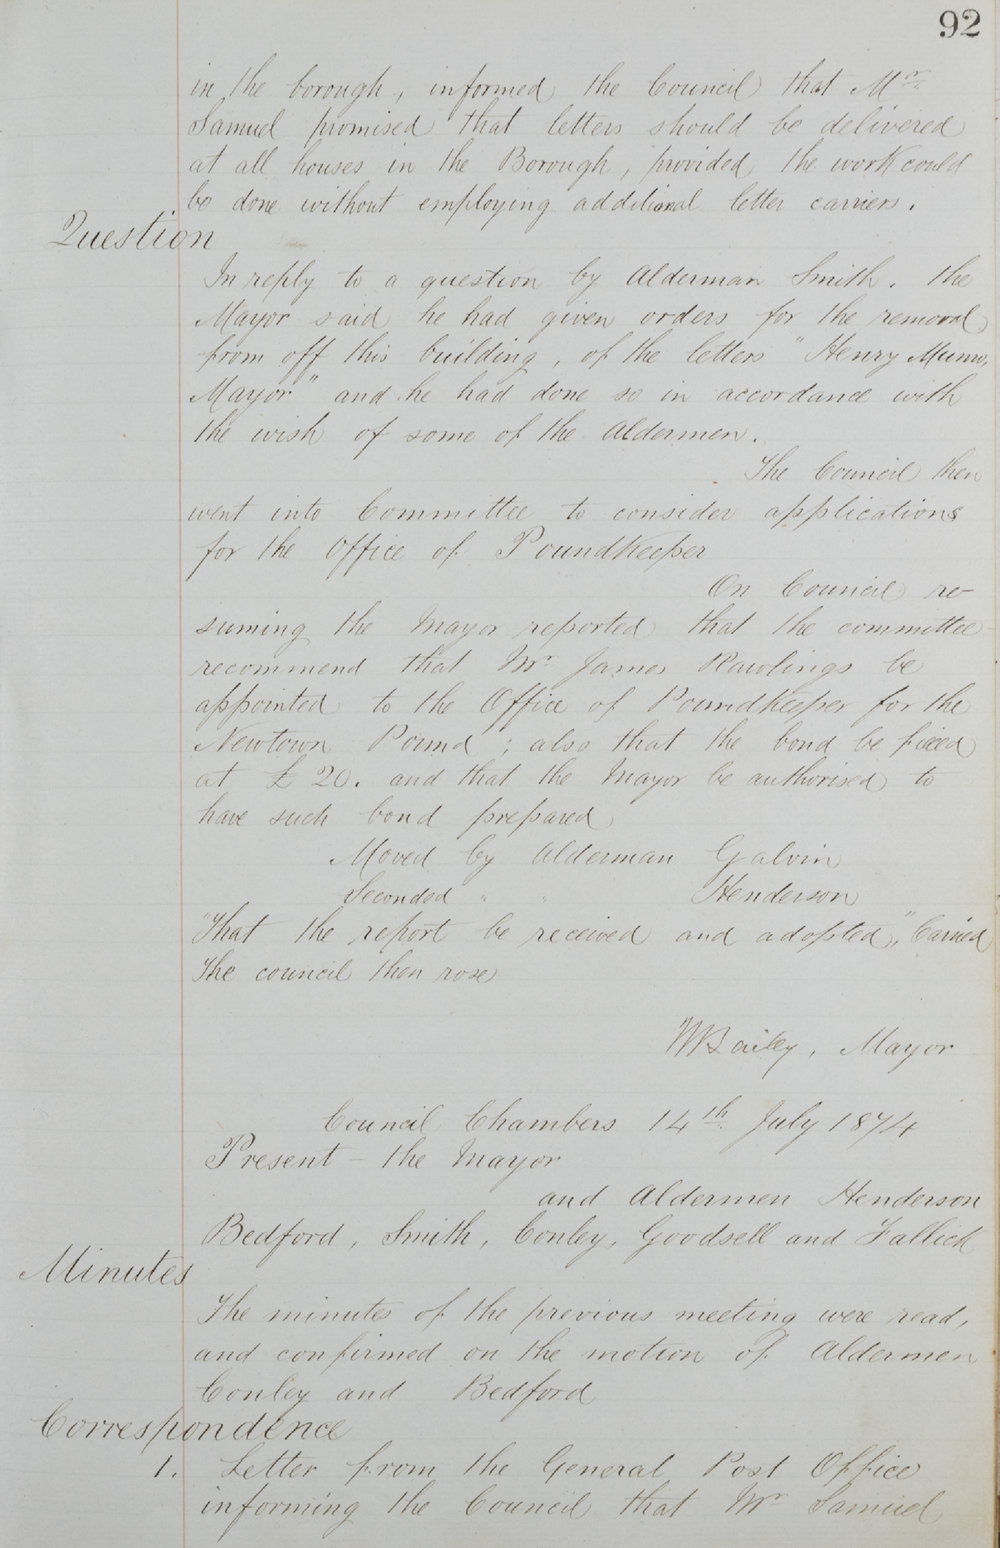 92
in the borough, informed the Council that Mr.
Samuel promised that letters should be delivered
at all houses in the Borough, provided the work could
be done without employing additional letter carriers.
Question
In reply to a question by Alderman Smith. the
Mayor said he had given orders for the removal
from off this building, of the letters "Henry Munro,
Mayor" and he had done so in accordance with
the wish of some of the Aldermen.
The Council then
went into Committee to consider applications
for the Office of Poundkeeper
On Council re-
suming the Mayor reported that the committee
recommend that Mr. James Rawlings be
appointed to the Office of Poundkeeper for the
Newtown Pound; also that the bond be fixed
at £20. and that the Mayor be authorised to
have such bond prepared
Moved by Alderman Galvin
Seconded " " Henderson
"That the report be received and adopted," Carried
The council then rose
W Bailey, Mayor
Council Chambers 14th. July 1874
Present - the Mayor
and Aldermen Henderson
Bedford, Smith, Conley, Goodsell and Fallick
Minutes
The minutes of the previous meeting were read,
and confirmed on the motion of Aldermen
Conley and Bedford
Correspondence
1. Letter from the General Post Office
informing the Council that Mr Samuel